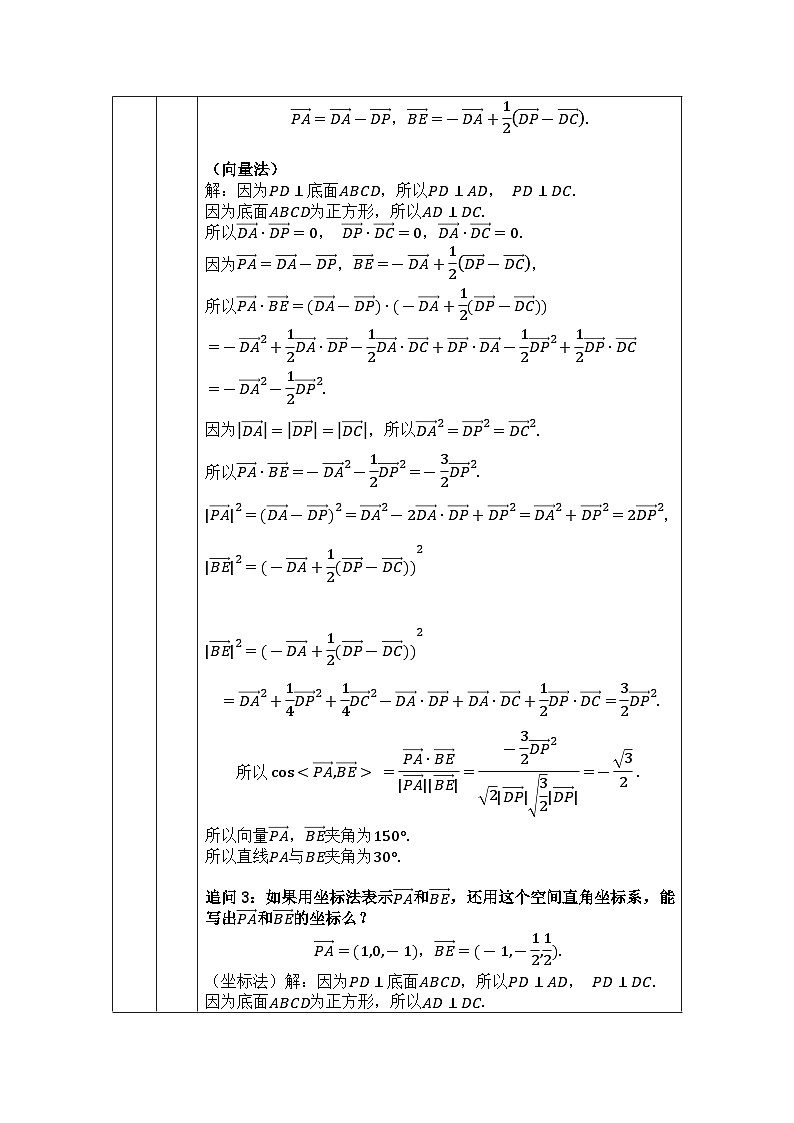 $\overrightarrow{PA}=\overrightarrow{DA}-\overrightarrow{DP}$，$\overrightarrow{BE}=-\overrightarrow{DA}+\frac{1}{2}(\overrightarrow{DP}-\overrightarrow{DC})$.
（向量法）
解：因为$PD\perp$底面$ABCD$，所以$PD\perp AD$， $PD\perp DC$.
因为底面$ABCD$为正方形，所以$AD\perp DC$.
所以$\overrightarrow{DA}\cdot\overrightarrow{DP}=0$， $\overrightarrow{DP}\cdot\overrightarrow{DC}=0$，$\overrightarrow{DA}\cdot\overrightarrow{DC}=0$.
因为$\overrightarrow{PA}=\overrightarrow{DA}-\overrightarrow{DP}$，$\overrightarrow{BE}=-\overrightarrow{DA}+\frac{1}{2}(\overrightarrow{DP}-\overrightarrow{DC})$，
所以$\overrightarrow{PA}\cdot\overrightarrow{BE}=(\overrightarrow{DA}-\overrightarrow{DP})\cdot(-\overrightarrow{DA}+\frac{1}{2}(\overrightarrow{DP}-\overrightarrow{DC}))$
$=-\overrightarrow{DA}^2+\frac{1}{2}\overrightarrow{DA}\cdot\overrightarrow{DP}-\frac{1}{2}\overrightarrow{DA}\cdot\overrightarrow{DC}+\overrightarrow{DP}\cdot\overrightarrow{DA}-\frac{1}{2}\overrightarrow{DP}^2+\frac{1}{2}\overrightarrow{DP}\cdot\overrightarrow{DC}$
$=-\overrightarrow{DA}^2-\frac{1}{2}\overrightarrow{DP}^2$.
因为$|\overrightarrow{DA}|=|\overrightarrow{DP}|=|\overrightarrow{DC}|$，所以$\overrightarrow{DA}^2=\overrightarrow{DP}^2=\overrightarrow{DC}^2$.
所以$\overrightarrow{PA}\cdot\overrightarrow{BE}=-\overrightarrow{DA}^2-\frac{1}{2}\overrightarrow{DP}^2=-\frac{3}{2}\overrightarrow{DP}^2$.
$|\overrightarrow{PA}|^2=(\overrightarrow{DA}-\overrightarrow{DP})^2=\overrightarrow{DA}^2-2\overrightarrow{DA}\cdot\overrightarrow{DP}+\overrightarrow{DP}^2=\overrightarrow{DA}^2+\overrightarrow{DP}^2=2\overrightarrow{DP}^2$，
$|\overrightarrow{BE}|^2=(-\overrightarrow{DA}+\frac{1}{2}(\overrightarrow{DP}-\overrightarrow{DC}))^2$
$|\overrightarrow{BE}|^2=(-\overrightarrow{DA}+\frac{1}{2}(\overrightarrow{DP}-\overrightarrow{DC}))^2$
$=\overrightarrow{DA}^2+\frac{1}{4}\overrightarrow{DP}^2+\frac{1}{4}\overrightarrow{DC}^2-\overrightarrow{DA}\cdot\overrightarrow{DP}+\overrightarrow{DA}\cdot\overrightarrow{DC}+\frac{1}{2}\overrightarrow{DP}\cdot\overrightarrow{DC}=\frac{3}{2}\overrightarrow{DP}^2$.
所以$\cos<\overrightarrow{PA},\overrightarrow{BE}>=\frac{\overrightarrow{PA}\cdot\overrightarrow{BE}}{|\overrightarrow{PA}||\overrightarrow{BE}|}=\frac{-\frac{3}{2}\overrightarrow{DP}^2}{\sqrt{2}|\overrightarrow{DP}|\sqrt{\frac{3}{2}}|\overrightarrow{DP}|}=-\frac{\sqrt{3}}{2}$.
所以向量$\overrightarrow{PA}$，$\overrightarrow{BE}$夹角为150°.
所以直线$PA$与$BE$夹角为30°.
追问 3：如果用坐标法表示$\overrightarrow{PA}$和$\overrightarrow{BE}$，还用这个空间直角坐标系，能
写出$\overrightarrow{PA}$和$\overrightarrow{BE}$的坐标么？
$\overrightarrow{PA}=(1,0,-1)$，$\overrightarrow{BE}=(-1,-\frac{1}{2},\frac{1}{2})$.
（坐标法）解：因为$PD\perp$底面$ABCD$，所以$PD\perp AD$， $PD\perp DC$.
因为底面$ABCD$为正方形，所以$AD\perp DC$.